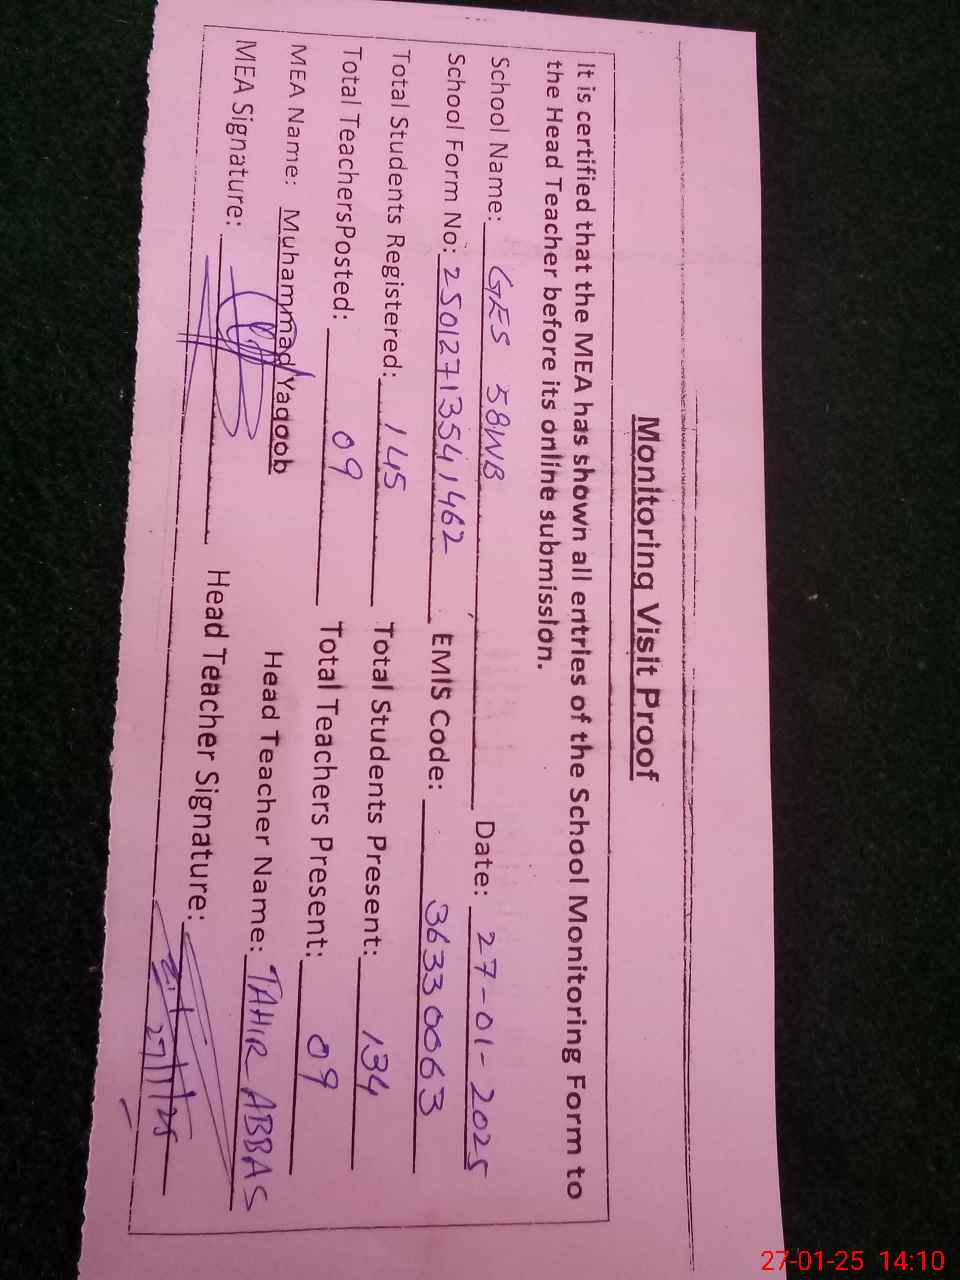 Monitoring Visit Proof
It is certified that the MEA has shown all entries of the School Monitoring Form to
the Head Teacher before its online submission.
School Name: GES 58WB Date: 27-01-2025
School Form No: 25012713541462 EMIS Code: 36330063
Total Students Registered: 145 Total Students Present: 134
Total TeachersPosted: 09 Total Teachers Present: 09
MEA Name: Muhammad Yaqoob Head Teacher Name: TAHIR ABBAS
MEA Signature: Head Teacher Signature:
27/1/25
27-01-25 14:10